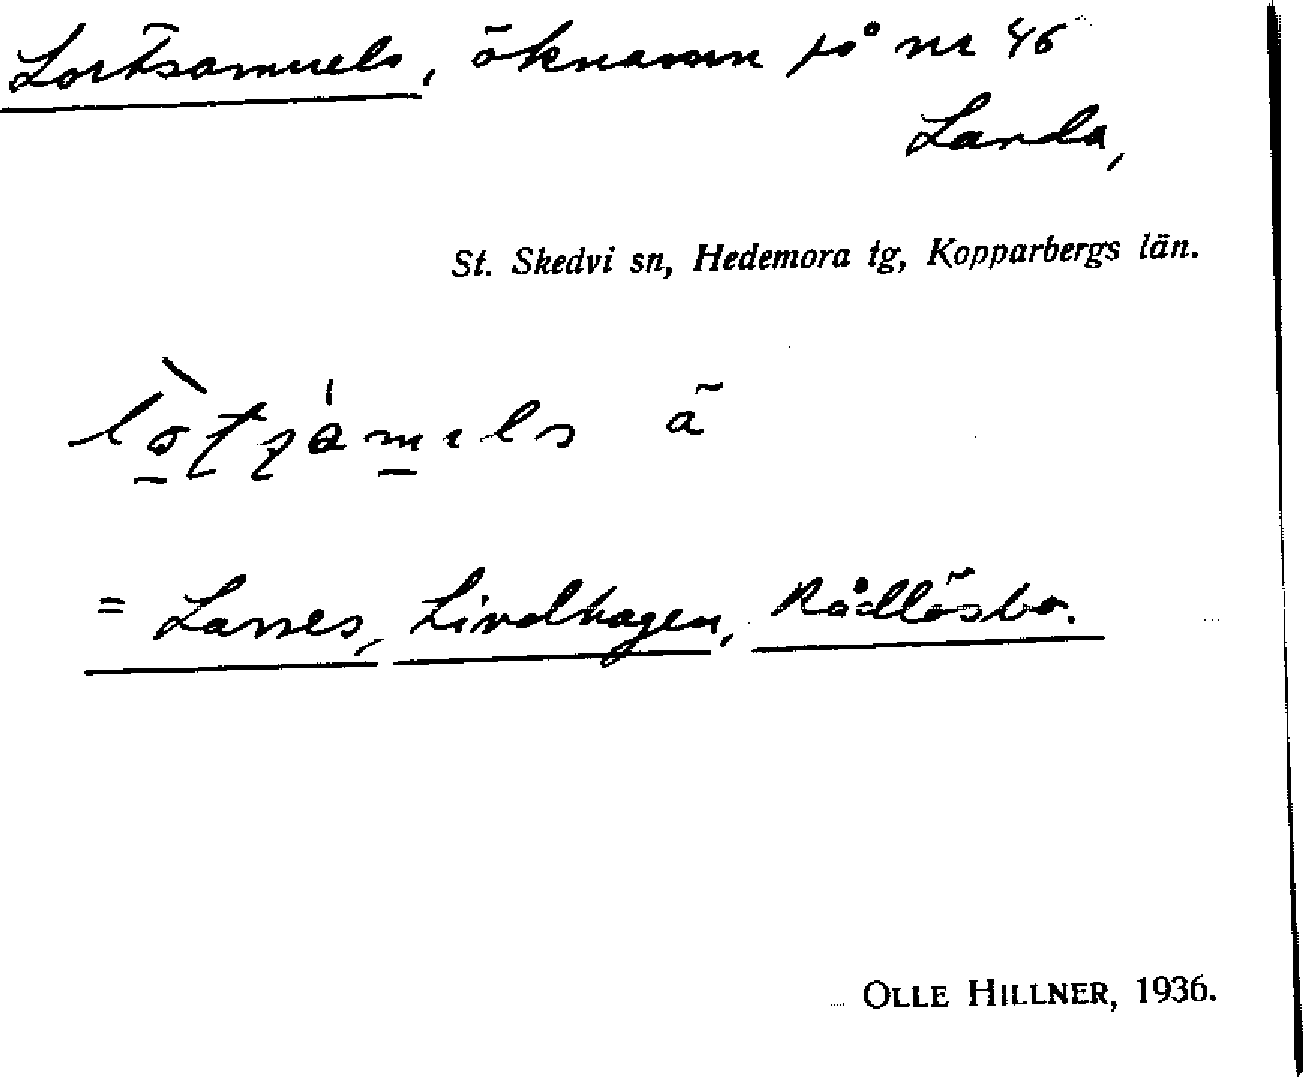 Lortsamuels, öknamn på nr 46
Landa,
St. Skedvi sn, Hedemora tg, Kopparbergs län.
ä
= Lasses, Lindhagen, Rådlösbo.
OLLE HILLNER, 1936.